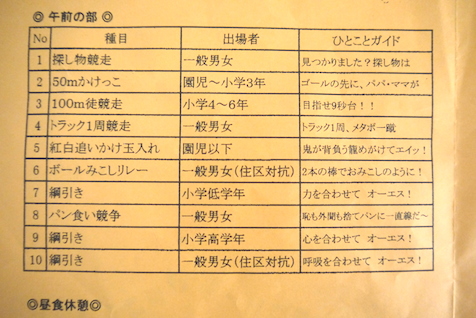 ◎ 午前の部 ◎
No 種目 出場者 ひとことガイド
1 探し物競走 一般男女 見つかりました？探し物は
2 50mかけっこ 園児～小学3年 ゴールの先に、パパ・ママが
3 100m徒競走 小学4～6年 目指せ9秒台！！
4 トラック1周競走 一般男女 トラック1周、メタボ一蹴
5 紅白追いかけ玉入れ 園児以下 鬼が背負う籠めがけてエイッ！
6 ボールみこしリレー 一般男女(住区対抗) 2本の棒でおみこしのように！
7 綱引き 小学低学年 力を合わせて オーエス！
8 パン食い競争 一般男女 恥も外聞も捨てパンに一直線だ～
9 綱引き 小学高学年 心を合わせて オーエス！
10 綱引き 一般男女(住区対抗) 呼吸を合わせて オーエス！
◎昼食休憩◎